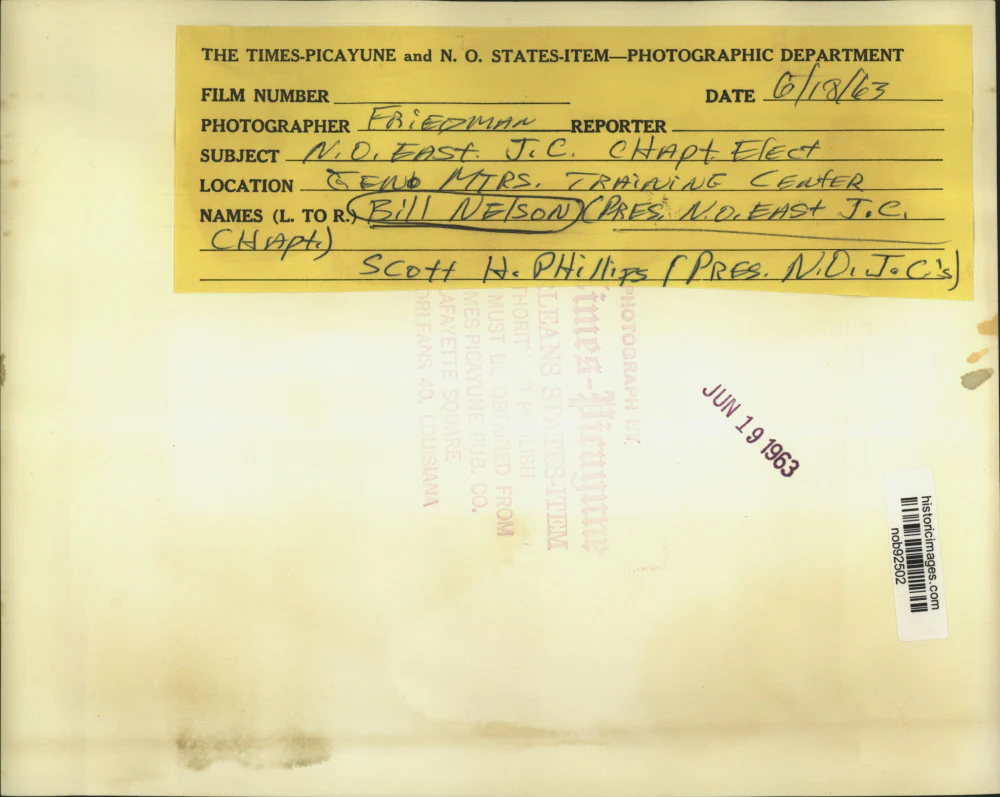 THE TIMES-PICAYUNE and N. O. STATES-ITEM—PHOTOGRAPHIC DEPARTMENT
FILM NUMBER
DATE 6/18/63
PHOTOGRAPHER FRIEDMAN REPORTER
SUBJECT N.O. EAST. J.C. CHAPT. Elect
LOCATION MTRS. TRAINING CENTER
NAMES (L. TO R.) Bill NELSON (PRES. N.O. EAST J.C.
CHAPT.)
SCOTT H. PHILLIPS (PRES. N.O. J.C's)
PHOTOGRAPH BY
Times-Picayune
LEANS STATES-ITEM
MUST BE OBTAINED FROM
MES-PICAYUNE PUB. CO.
AFAYETTE SQUARE
ORLEANS, 40, LOUISIANA
JUN 19 1963
historicimages.com
nob92502